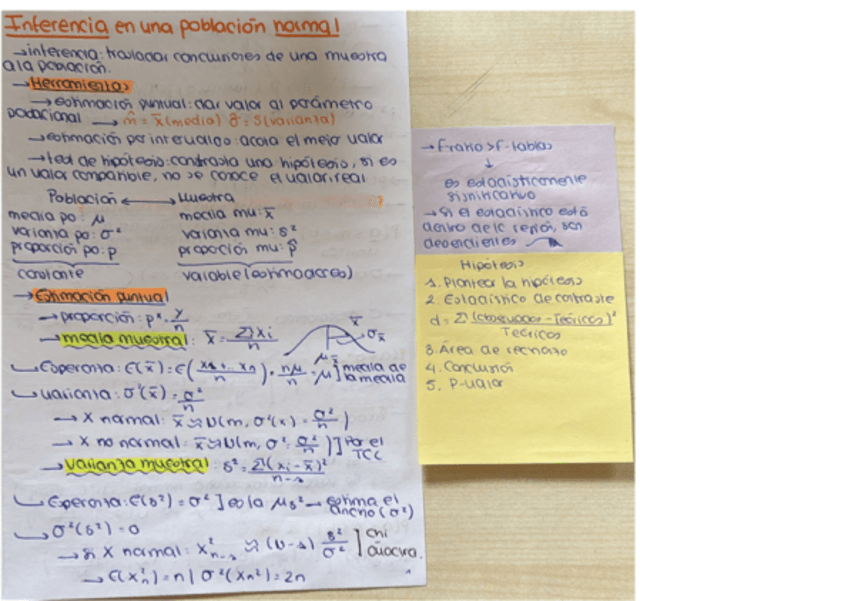 Inferencia en una población normal
→ inferencia: trasladar conclusiones de una muestra
a la población.
→ Herramientas
→ estimación puntual: dar valor al parámetro
poblacional → m̂ = x̄ (media) σ̂ = S (varianza)
→ estimación por intervalos: acota el mejor valor
→ test de hipótesis: contrasta una hipótesis, si es
un valor compatible, no se conoce el valor real
Población ⟷ Muestra
media po: μ media mu: x̄
varianza po: σ² varianza mu: s²
proporción po: p proporción mu: p̂
constante variable (estimadores)
→ Estimación puntual
→ proporción: p* = y/n
→ media muestral: x̄ = Σxi/n
Esperanza: E(x̄) = E((x1+...xn)/n) = nμ/n = μ ] media de la media
varianza: σ²(x̄) = σ²/n
→ X normal: x̄ ≈ N(m, σ²(x) = σ²/n)
→ X no normal: x̄ ≈ N(m, σ² = σ²/n) ] Por el TCL
→ Varianza muestral: s² = Σ(xi - x̄)²/n-1
Esperanza: E(s²) = σ² ] es la μs² → estima el ancho (σ²)
σ²(s²) = 0
→ si X normal: X²n-1 ≈ (n-1) s²/σ² ] chi cuadrado.
→ E(X²n) = n | σ²(Xn²) = 2n
→ F ratio > F tablas
↓
es estadísticamente
significativo
→ Si el estadístico está
dentro de la región, son
dependientes
Hipótesis
1. Plantear la hipótesis
2. Estadístico de contraste
d = Σ (observados - Teóricos)²
Teóricos
3. Área de rechazo
4. Conclusión
5. P-valor